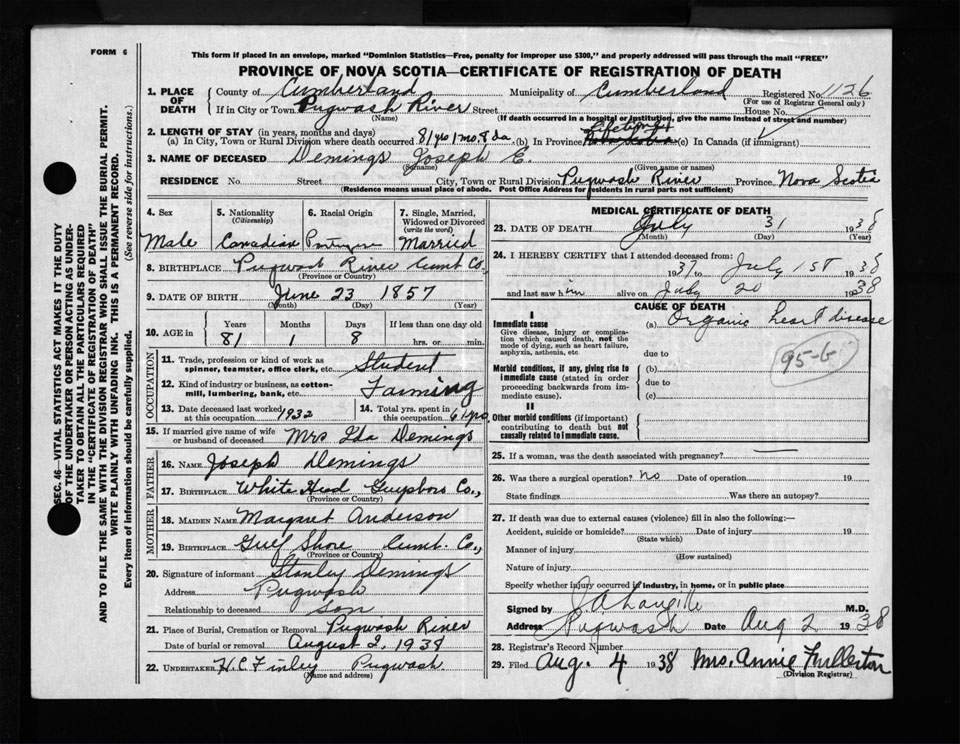 FORM 6
This form if placed in an envelope, marked "Dominion Statistics—Free, penalty for improper use $300," and properly addressed will pass through the mail "FREE"
PROVINCE OF NOVA SCOTIA—CERTIFICATE OF REGISTRATION OF DEATH
1. PLACE OF DEATH County of Cumberland Municipality of Cumberland Registered No. 1126
(For use of Registrar General only)
If in City or Town Pugwash River Street House No.
(Name) (If death occurred in a hospital or institution, give the name instead of street and number)
2. LENGTH OF STAY (in years, months and days) Lifetime
(a) In City, Town or Rural Division where death occurred 81 yo 1 mo. 8 da. (b) In Province Nova Scotia (c) In Canada (if immigrant)
3. NAME OF DECEASED Demings Joseph E.
(Surname) (Given name or names)
RESIDENCE No. Street City, Town or Rural Division Pugwash River Province Nova Scotia
(Residence means usual place of abode. Post Office Address for residents in rural parts not sufficient)
4. Sex Male
5. Nationality (Citizenship) Canadian
6. Racial Origin
7. Single, Married, Widowed or Divorced (write the word) Married
8. BIRTHPLACE Pugwash River Cumb Co.
(Province or Country)
9. DATE OF BIRTH June 23 1857
(Month) (Day) (Year)
10. AGE in Years 81 Months 1 Days 8 If less than one day old hrs. or min.
OCCUPATION
11. Trade, profession or kind of work as spinner, teamster, office clerk, etc. Student
12. Kind of industry or business, as cotton-mill, lumbering, bank, etc. Farming
13. Date deceased last worked at this occupation 1932
14. Total yrs. spent in this occupation yrs
15. If married give name of wife or husband of deceased Mrs Ida Demings
FATHER
16. NAME Joseph Demings
17. BIRTHPLACE White Head Guysboro Co.,
(Province or Country)
MOTHER
18. MAIDEN NAME Margaret Anderson
19. BIRTHPLACE Gulf Shore Cumb. Co.,
(Province or Country)
20. Signature of informant Stanley Demings
Address Pugwash
Relationship to deceased Son
21. Place of Burial, Cremation or Removal Pugwash River
Date of burial or removal August 2, 1938
22. UNDERTAKER H.C. Finley Pugwash
(Name and address)
MEDICAL CERTIFICATE OF DEATH
23. DATE OF DEATH July 31 1938
(Month) (Day) (Year)
24. I HEREBY CERTIFY that I attended deceased from:
1937 to July 1st 1938
and last saw him alive on July 20 1938
CAUSE OF DEATH
I
Immediate cause (a) Organic heart disease
Give disease, injury or complication which caused death, not the mode of dying, such as heart failure, asphyxia, asthenia, etc
due to
95-b
Morbid conditions, if any, giving rise to immediate cause (stated in order proceeding backwards from immediate cause).
(b)
due to
(c)
II
Other morbid conditions (if important) contributing to death but not causally related to immediate cause.
25. If a woman, was the death associated with pregnancy?
26. Was there a surgical operation? No Date of operation 19
State findings Was there an autopsy?
27. If death was due to external causes (violence) fill in also the following:—
Accident, suicide or homicide? Date of injury 19
(State which)
Manner of injury
(How sustained)
Nature of injury
Specify whether injury occurred in industry, in home, or in public place
Signed by M.D.
Address Pugwash Date Aug 2 1938
28. Registrar's Record Number
29. Filed Aug. 4 1938 Mrs. Annie Fullerton
(Division Registrar)
SEC. 46—VITAL STATISTICS ACT MAKES IT THE DUTY
OF THE UNDERTAKER OR PERSON ACTING AS UNDER-
TAKER TO OBTAIN ALL THE PARTICULARS REQUIRED
IN THE "CERTIFICATE OF REGISTRATION OF DEATH"
AND TO FILE THE SAME WITH THE DIVISION REGISTRAR WHO SHALL ISSUE THE BURIAL PERMIT.
WRITE PLAINLY WITH UNFADING INK. THIS IS A PERMANENT RECORD.
Every item of information should be carefully supplied. (See reverse side for instructions.)